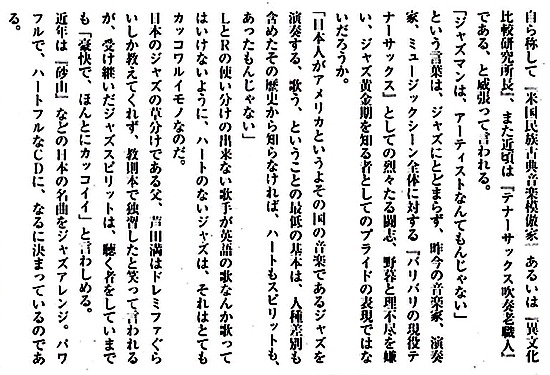 自ら称して『米国民族古典音楽模倣家』あるいは『異文化
比較研究所長』、また近頃は『テナーサックス吹奏老職人』
である、と威張って言われる。
「ジャズマンは、アーティストなんてもんじゃない」
という言葉は、ジャズにとどまらず、昨今の音楽家、演奏
家、ミュージックシーン全体に対する『バリバリの現役テ
ナーサックス』としての烈々たる闘志、野暮と理不尽を嫌
い、ジャズ黄金期を知る者としてのプライドの表現ではな
いだろうか。
「日本人がアメリカというよその国の音楽であるジャズを
演奏する、歌う、ということの最低の基本は、人種差別も
含めたその歴史から知らなければ、ハートもスピリットも、
あったもんじゃない」
LとRの使い分けの出来ない歌手が英語の歌なんか歌って
はいけないように、ハートのないジャズは、それはとても
カッコワルイモノなのだ。
日本のジャズの草分けである父、芦田満はドレミファぐら
いしか教えてくれず、教則本で独習したと笑って言われる
が、受け継いだジャズスピリットは、聴く者をしていまで
も「豪快で、ほんとにカッコイイ」と言わしめる。
近年は『砂山』などの日本の名曲をジャズアレンジ。パワ
フルで、ハートフルなCDに、なるに決まっているのであ
る。